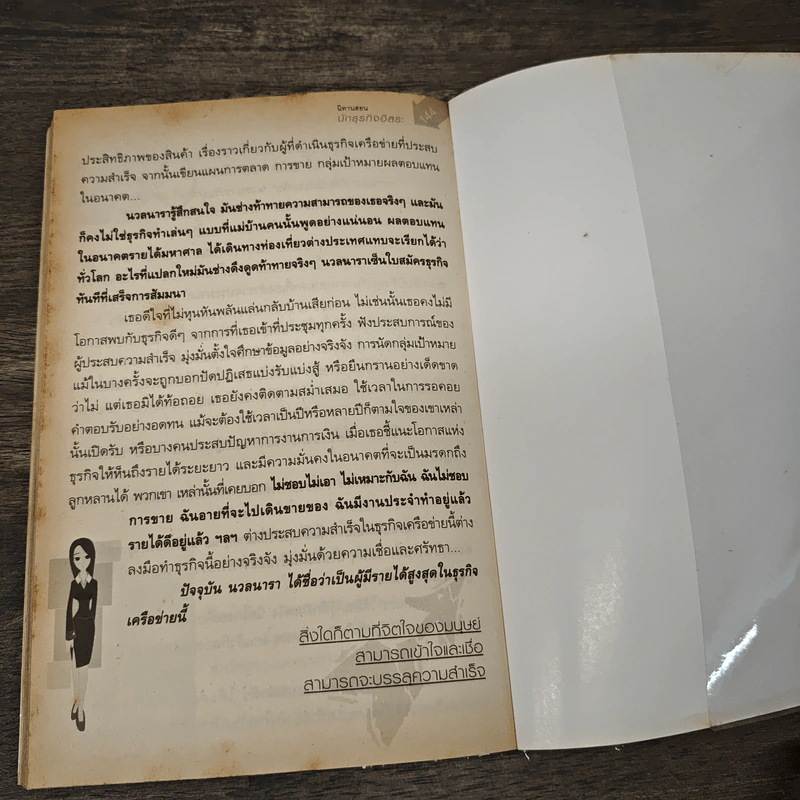 นิทานสอน
นักธุรกิจอิสระ
144
ประสิทธิภาพของสินค้า เรื่องราวเกี่ยวกับผู้ที่ดำเนินธุรกิจเครือข่ายที่ประสบ
ความสำเร็จ จากนั้นเขียนแผนการตลาด การขาย กลุ่มเป้าหมายผลตอบแทน
ในอนาคต...
นวลนารารู้สึกสนใจ มันช่างท้าทายความสามารถของเธอจริงๆ และมัน
ก็คงไม่ใช่ธุรกิจทำเล่นๆ แบบที่แม่บ้านคนนั้นพูดอย่างแน่นอน ผลตอบแทน
ในอนาคตรายได้มหาศาล ได้เดินทางท่องเที่ยวต่างประเทศแทบจะเรียกได้ว่า
ทั่วโลก อะไรที่แปลกใหม่มันช่างดึงดูดท้าทายจริงๆ นวลนาราเซ็นใบสมัครธุรกิจ
ทันทีที่เสร็จการสัมมนา
เธอดีใจที่ไม่หุนหันพลันแล่นกลับบ้านเสียก่อน ไม่เช่นนั้นเธอคงไม่มี
โอกาสพบกับธุรกิจดีๆ จากการที่เธอเข้าที่ประชุมทุกครั้ง ฟังประสบการณ์ของ
ผู้ประสบความสำเร็จ มุ่งมั่นตั้งใจศึกษาข้อมูลอย่างจริงจัง การนัดกลุ่มเป้าหมาย
แม้ในบางครั้งจะถูกบอกปัดปฏิเสธแบ่งรับแบ่งสู้ หรือยืนกรานอย่างเด็ดขาด
ว่าไม่ แต่เธอมิได้ท้อถอย เธอยังคงติดตามสม่ำเสมอ ใช้เวลาในการรอคอย
คำตอบรับอย่างอดทน แม้จะต้องใช้เวลาเป็นปีหรือหลายปีก็ตามใจของเขาเหล่า
นั้นเปิดรับ หรือบางคนประสบปัญหาการงานการเงิน เมื่อเธอชี้แนะโอกาสแห่ง
ธุรกิจให้เห็นถึงรายได้ระยะยาว และมีความมั่นคงในอนาคตที่จะเป็นมรดกถึง
ลูกหลานได้ พวกเขา เหล่านั้นที่เคยบอก ไม่ชอบไม่เอา ไม่เหมาะกับฉัน ฉันไม่ชอบ
การขาย ฉันอายที่จะไปเดินขายของ ฉันมีงานประจำทำอยู่แล้ว
รายได้ดีอยู่แล้ว ฯลฯ ต่างประสบความสำเร็จในธุรกิจเครือข่ายนี้ต่าง
ลงมือทำธุรกิจนี้อย่างจริงจัง มุ่งมั่นด้วยความเชื่อและศรัทธา...
ปัจจุบัน นวลนารา ได้ชื่อว่าเป็นผู้มีรายได้สูงสุดในธุรกิจ
เครือข่ายนี้
สิ่งใดก็ตามที่จิตใจของมนุษย์
สามารถเข้าใจและเชื่อ
สามารถจะบรรลุความสำเร็จ